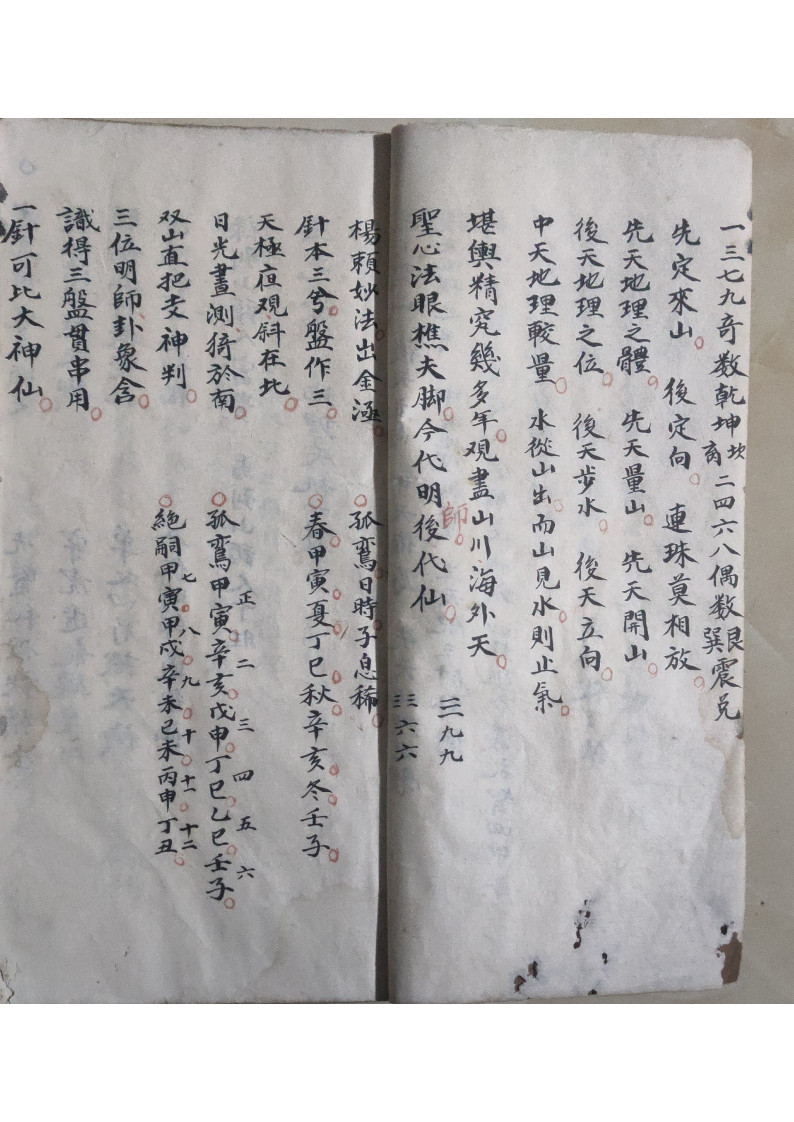 一三七九奇数乾坤坎离 二四六八偶数艮巽震兑
先定來山 後定向 連珠莫相放
先天地理之體 先天量山 先天開山
後天地理之位 後天步水 後天立向
中天地理較量 水從山出而山見水則止氣
堪輿精究幾多年观盡山川海外天
聖心法眼樵夫脚今代明師後代仙
三九九
三六六
楊賴妙法出金凾 孤鸞日時子息稀
針本三兮盤作三 春甲寅夏丁巳秋辛亥冬壬子
天極夜观斜在北
日光晝測猗於南 孤鸞甲寅辛亥戊申丁巳乙巳壬子
正 二 三 四 五 六
双山直把支神判 絶嗣甲寅甲戌辛未己未丙申丁丑
七 八 九 十 十一 十二
三位明師卦象含
識得三盤貫串用
一針可比大神仙